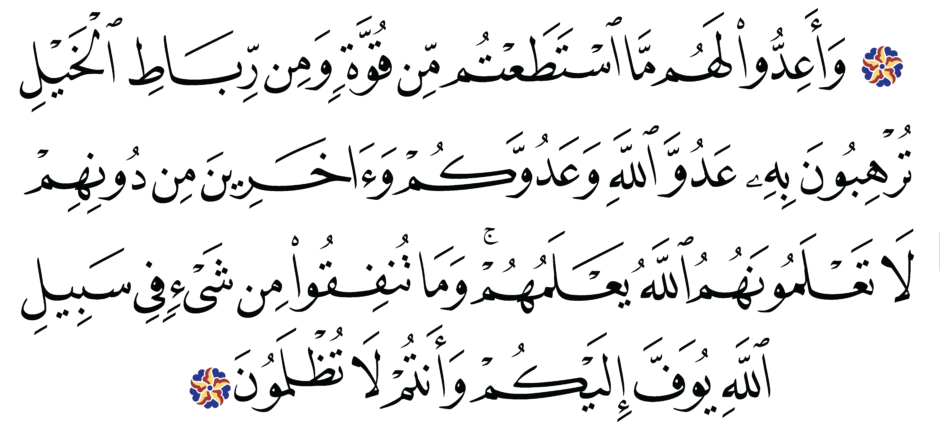 وَأَعِدُّوا۟ لَهُم مَّا ٱسْتَطَعْتُم مِّن قُوَّةٍ وَمِن رِّبَاطِ ٱلْخَيْلِ
تُرْهِبُونَ بِهِۦ عَدُوَّ ٱللَّهِ وَعَدُوَّكُمْ وَءَاخَرِينَ مِن دُونِهِمْ
لَا تَعْلَمُونَهُمُ ٱللَّهُ يَعْلَمُهُمْ ۚ وَمَا تُنفِقُوا۟ مِن شَىْءٍ فِى سَبِيلِ
ٱللَّهِ يُوَفَّ إِلَيْكُمْ وَأَنتُمْ لَا تُظْلَمُونَ